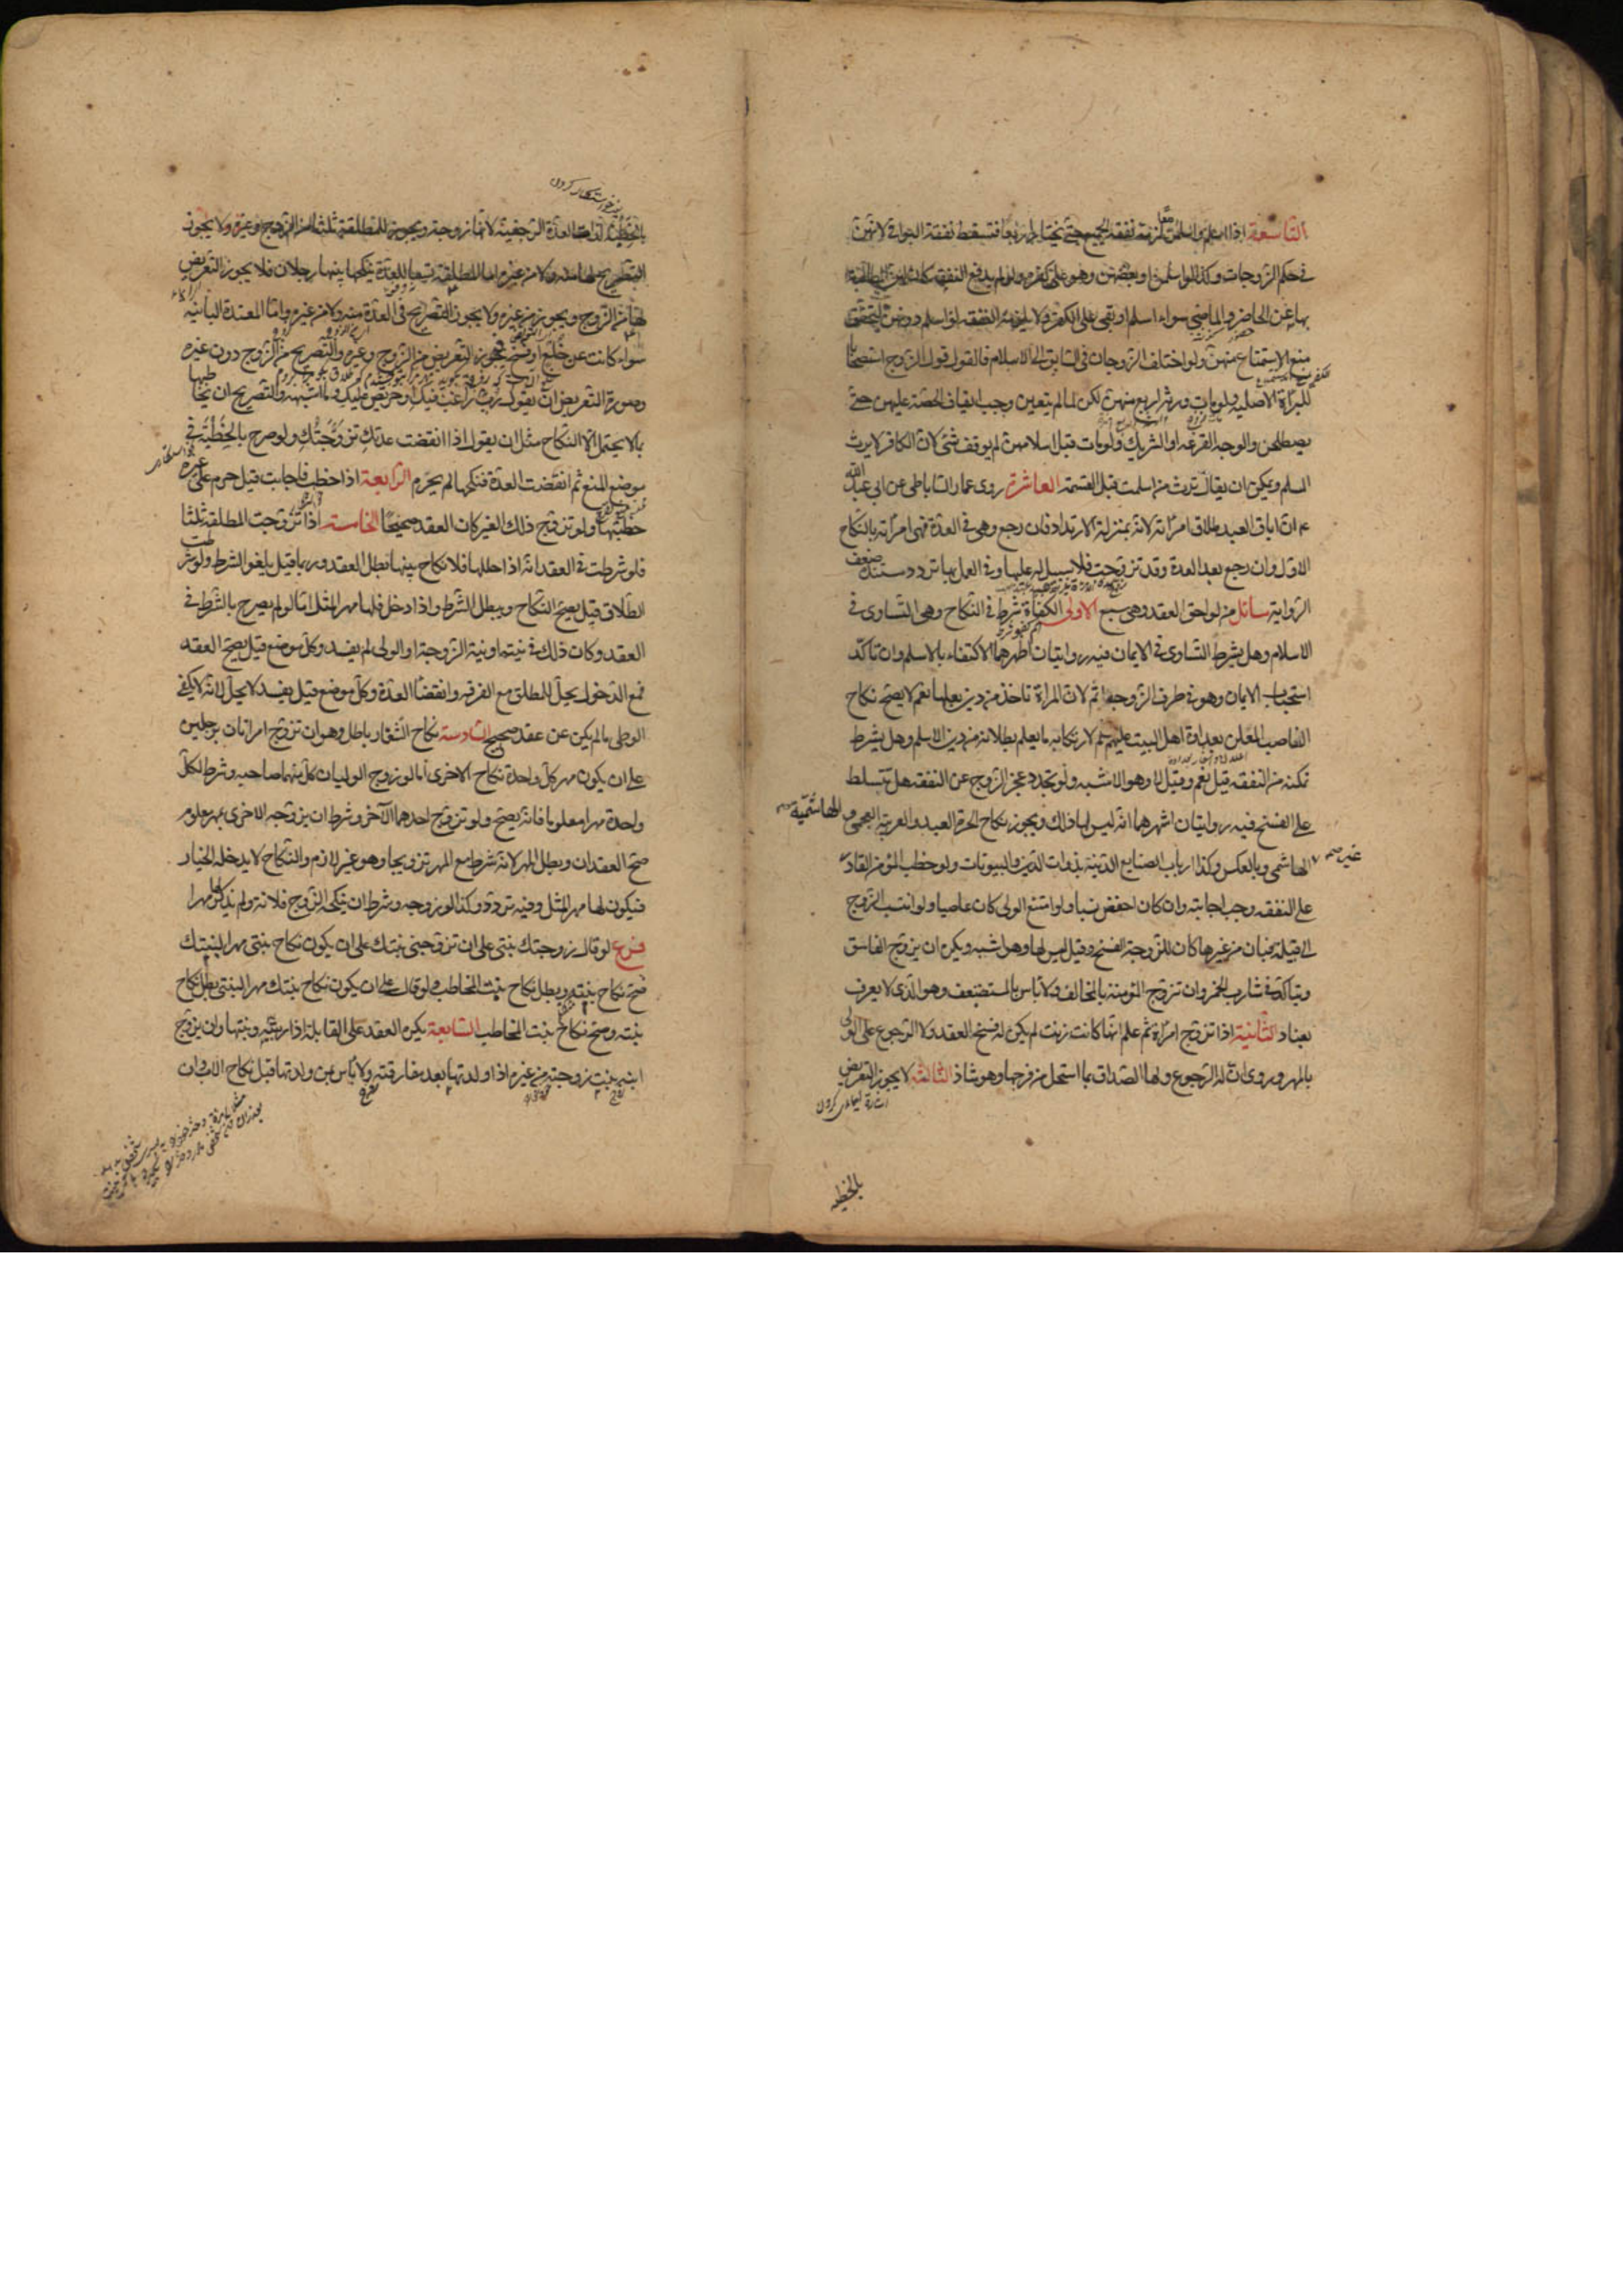 التاسعة اذا اسلم واسلمن معا لزمه نفقة الجميع حتى يختار اربعا فتسقط نفقة البواقي لانهن
في حكم الزوجات وكذا لو اسلمن او بعضهن وهو على كفره ولو لم يدفع النفقة كان لهن المطالبة
بها عن الحاضر والماضي سواء اسلم او بقي على الكفر ولا يلزمه النفقة لو اسلم دونهن لتحقق
منع الاستمتاع منهن ولو اختلف الزوجان في السابق الى الاسلام فالقول قول الزوج استصحابا
للبراءة الاصلية ولو مات ورثه اربع منهن لكن لما لم يتعين وجب ايقاف الحصة عليهن حتى
يصطلحن والوجه القرعة او التشريك ولو مات قبل اسلامهن لم يوقف شئ لان الكافر لا يرث
المسلم ويمكن ان يقال ترث من اسلمت قبل القسمة العاشرة روى عمار الساباطي عن ابي عبد الله
ع ان اباق العبد طلاق امرأته لانه بمنزلة الارتداد فان رجع وهي في العدة فهي امرأته بالنكاح
الاول وان رجع بعد العدة وقد تزوجت فلا سبيل له عليها وفي العمل بها تردد مستنده ضعف
الرواية مسائل من لواحق العقد وهي سبع الاولى الكفاءة شرط في النكاح وهي التساوي في
الاسلام وهل يشترط التساوي في الايمان فيه روايتان اظهرهما الاكتفاء بالاسلم وان تاكد
استحباب الايمان وهو في طرف الزوجة اتم لان المراة تاخذ من دين بعلها نعم لا يصح نكاح
الناصب المعلن بعداوة اهل البيت عليهم لارتكابه ما يعلم بطلانه من دين الاسلم وهل يشترط
تمكنه من النفقه قيل نعم وقيل لا وهو الاشبه ولو تجدد عجز الزوج عن النفقه هل تتسلط
على الفسخ فيه روايتان اشهرهما انه ليس لها ذلك ويجوز نكاح الحرة العبد والعربية العجمي والهاشمية
غير الهاشمي وبالعكس وكذا ارباب الصنايع الدنية بذوات الدين والبيوتات ولو خطب المؤمن القادر
على النفقه وجب اجابته وان كان اخفض نسبا ولو امتنع الولي كان عاصيا ولو انتسب الزوج
الى قبيلة فبان من غيرها كان للزوجة الفسخ وقيل ليس لها وهو اشبه ويكره ان يزوج الفاسق
ويتاكد في شارب الخمر وان تزوج المؤمنة بالمخالف ولا باس بالمستضعف وهو الذي لا يعرف
بعناد الثانية اذا تزوج امراة ثم علم انها كانت زنت لم يكن له فسخ العقد ولا الرجوع على الولي
بالمهر وروى ان له الرجوع ولها الصداق بما استحل من فرجها وهو شاذ الثالثة لا يجوز التعريض
بالخطبه
بالخطبة لذات العدة الرجعية لانها زوجة ويجوز للمطلقة ثلثا من الزوج وغيره ولا يجوز
التصريح لها منه ولا من غيره اما المطلقة تسعا للعدة ينكحها بينها رجلان فلا يجوز التعريض
لها من الزوج ويجوز من غيره ولا يجوز التصريح في العدة منه ولا من غيره واما المعتدة البائنة
سواء كانت عن خلع او فسخ يجوز التعريض من الزوج وغيره والتصريح من الزوج دون غيره
وصورة التعريض ان يقول رب راغب فيك او حريص عليك وما اشبهه والتصريح ان يخاطبها
بما لا يحتمل الا النكاح مثل ان يقول اذا انقضت عدتك تزوجتك ولو صرح بالخطبة في
موضع المنع ثم انقضت العدة فنكحها لم يحرم الرابعة اذا خطب فاجابت قيل حرم على غيره
خطبتها ولو تزوج ذلك الغير كان العقد صحيحا الخامسة اذا تزوجت المطلقة ثلثا
فلو شرطت في العقد انه اذا احللها فلا نكاح بينهما بطل العقد وربما قيل يلغو الشرط ولو شرطت
الطلاق قيل يصح النكاح ويبطل الشرط واذا دخل فلها مهر المثل اما لو لم يصرح بالشرط في
العقد وكان ذلك في نيته او نية الزوجة او الولي لم يفسد وكل موضع قيل يصح العقد
فمع الدخول يحل للمطلق مع الفرقه وانقضا العدة وكل موضع قيل يفسد لا يحل لانه لا يكفي
الوطى ما لم يكن عن عقد صحيح السادسة نكاح الشغار باطل وهو ان تزوج امراتان برجلين
على ان يكون مهر كل واحدة نكاح الاخرى اما لو زوج الوليان كل منهما صاحبه وشرط لكل
واحدة مهرا معلوما فانه يصح ولو تزوج احدهما الآخر وشرط ان يزوجه الاخرى بمهر معلوم
صح العقدان وبطل المهر لانه شرط مع المهر تزويجا وهو غير لازم والنكاح لا يدخله الخيار
فيكون لها مهر المثل وفيه تردد وكذا لو زوجه وشرط ان ينكحه الزوج فلانة ولم يذكر مهرا
فرع لو قال زوجتك بنتي على ان تزوجني بنتك على ان يكون نكاح بنتي مهرا لبنتك
صح نكاح بنته وبطل نكاح بنت المخاطب ولو قال على ان يكون نكاح بنتك مهرا لبنتي بطل نكاح
بنته وصح نكاح بنت المخاطب السابعة يكره العقد على القابلة اذا ربته وبنتها وان يزوج
ابنه بنت زوجته من غيره اذا ولدتها بعد مفارقته ولا باس بمن ولدتها قبل نكاح الاب وان